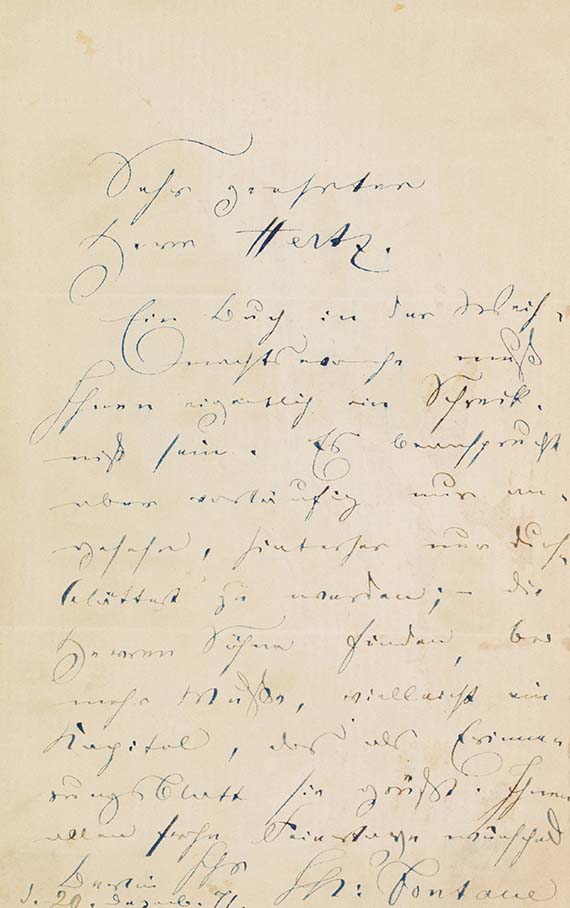 Sehr geehrter
Herr Hertz.
Ein Buch in der Weih-
nachtswoche muß
Ihnen eigentlich ein Schreck-
niß sein. Es beansprucht
aber vorläufig nur an-
gesehn, hinterher nur durch-
blättert zu werden; – die
Herren Söhne finden, bei
mehr Muße, vielleicht ein
Kapitel, das als Erinne-
rungsblatt sie grüßt. Ihnen
allen frohe Feiertage wünschend
Ihr
Th: Fontane
Berlin
d. 20. Dezemb. 71.